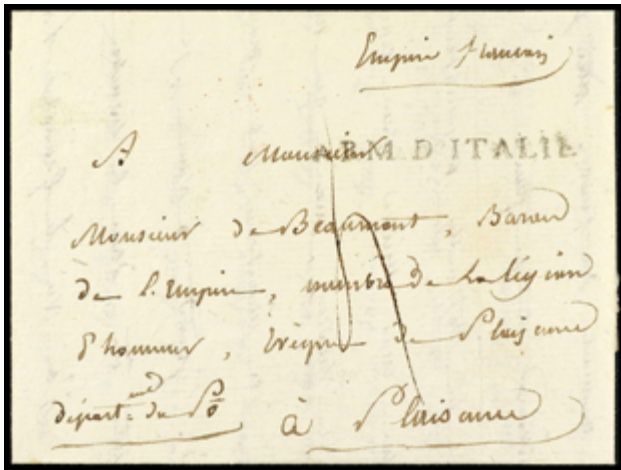 Empire francais
A Monsieur
ARM. D'ITALIE
Monsieur de Beaumont, Baron
de l'Empire, membre de la légion
d'honneur, Evêque de Plaisance
départ. du Pô à Plaisance